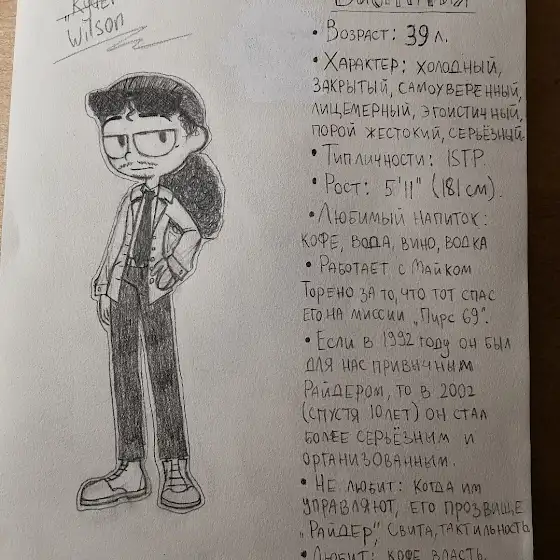 Wilson
• Возраст: 39 л.
• Характер: холодный,
закрытый, самоуверенный,
лицемерный, эгоистичный,
порой жестокий, серьёзный
• Тип личности: ISTP.
• Рост: 5'11" (181 см).
• Любимый напиток:
кофе, вода, вино, водка
• Работает с Майком
Торено за то, что тот спас
его на миссии „Пирс 69".
• Если в 1992 году он был
для нас привычным
Райдером, то в 2002
(спустя 10 лет) он стал
более серьёзным и
организованным.
• Не любит: когда им
управляют, его прозвище
„Райдер", Свита, тактильность
• Любит: кофе, власть.